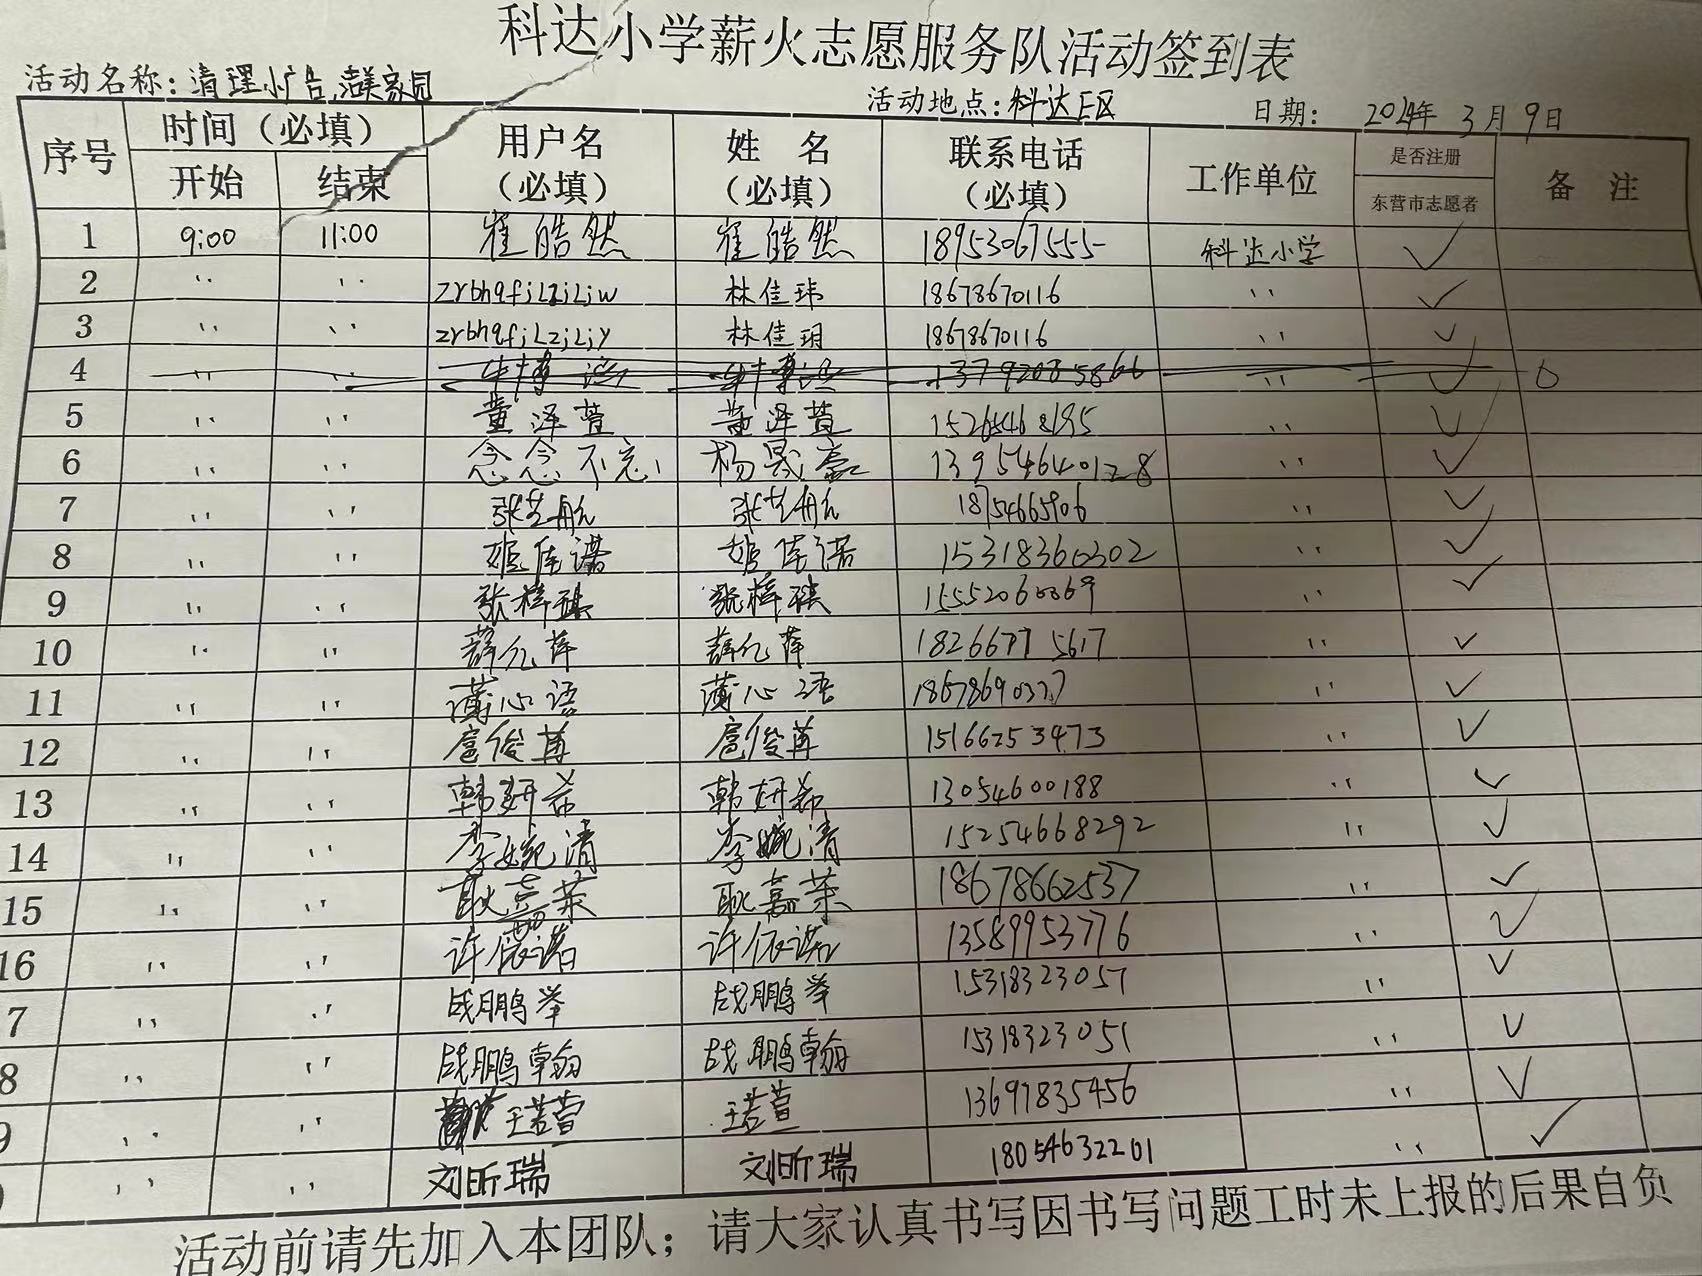 科达小学薪火志愿服务队活动签到表
活动名称：清理小广告,洁美家园 活动地点：科达E区 日期： 2024年 3月 9日
序号 时间（必填） 用户名（必填） 姓 名（必填） 联系电话（必填） 工作单位 是否注册 备 注
开始 结束 东营市志愿者
1 9:00 11:00 崔皓然 崔皓然 18953067555 科达小学 ✓
2 '' '' zrbhqfjLzjLjw 林佳玮 18678670116 '' ✓
3 '' '' zrbhqfjLzjLjy 林佳玥 18678670116 '' ✓
4 '' '' 13792085866 '' ✓
5 '' '' 董泽萱 董泽萱 15265468195 '' ✓
6 '' '' 念念不忘 杨晟嘉 13954640128 '' ✓
7 '' '' 张艺航 张艺航 18754665906 '' ✓
8 '' '' 姬佳诺 姬佳诺 15318360302 '' ✓
9 '' '' 张梓琪 张梓琪 15552060069 '' ✓
10 '' '' 薛亿萍 薛亿萍 18266775617 '' ✓
11 '' '' 蒲心语 蒲心语 18678690377 '' ✓
12 '' '' 扈俊苒 扈俊苒 15166253473 '' ✓
13 '' '' 韩妍希 韩妍希 13054600188 '' ✓
14 '' '' 李婉清 李婉清 15254668292 '' ✓
15 '' '' 耿嘉荣 耿嘉荣 18678662537 '' ✓
16 '' '' 许依诺 许依诺 13589953776 '' ✓
7 '' '' 战鹏举 战鹏举 15318323051 '' ✓
8 '' '' 战鹏翰 战鹏翰 15318323051 '' ✓
9 '' '' 王若萱 王若萱 13697835456 '' ✓
'' '' 刘昕瑞 刘昕瑞 18054632201 '' ✓
活动前请先加入本团队；请大家认真书写因书写问题工时未上报的后果自负